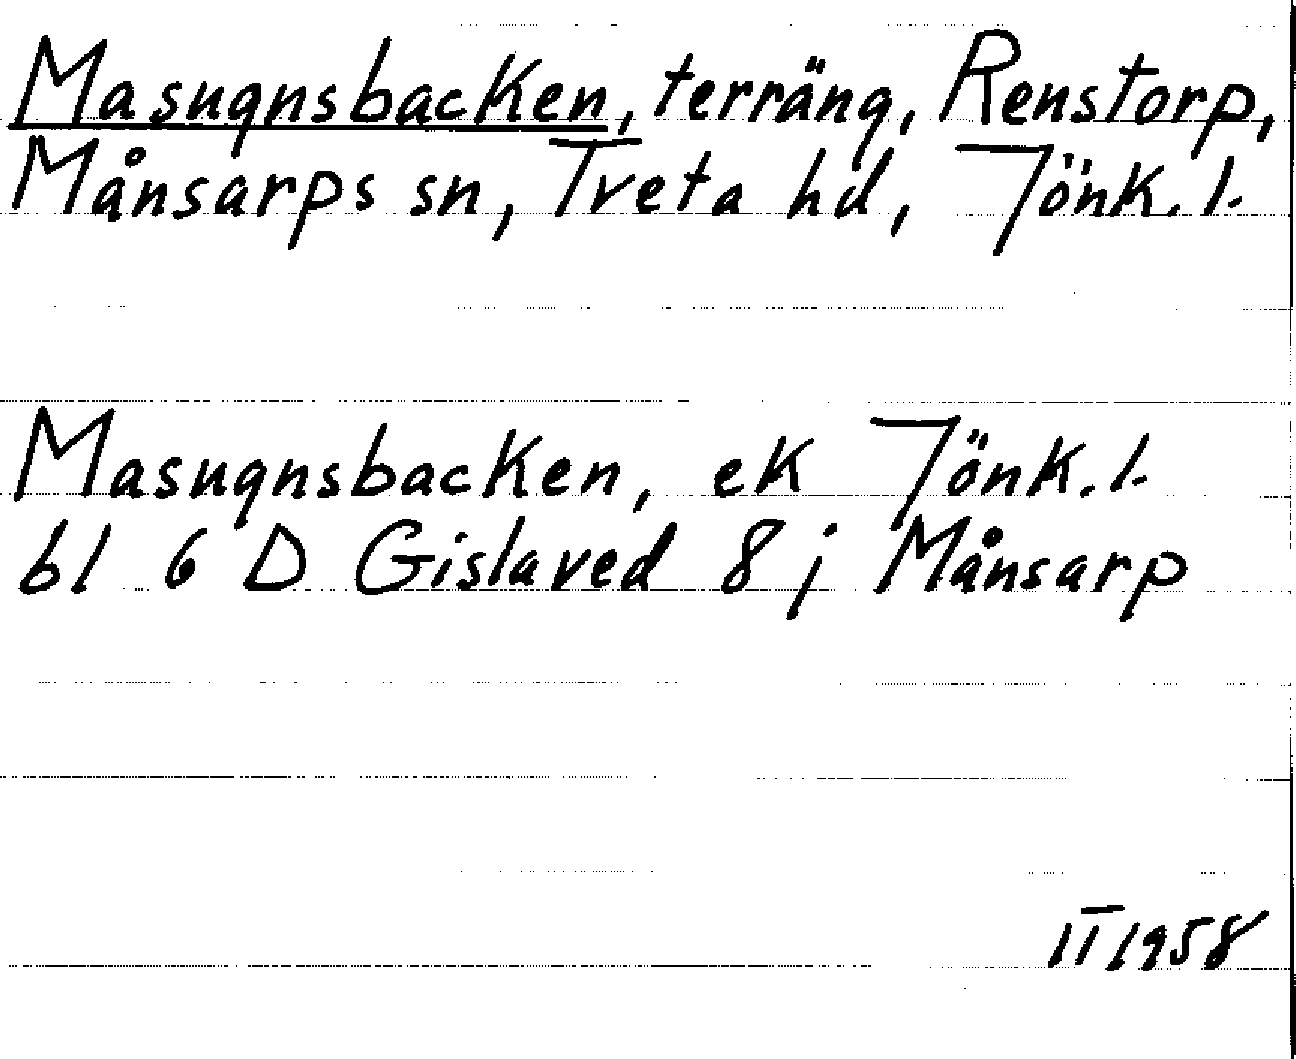 Masugnsbacken, terräng, Renstorp,
Månsarps sn, Tveta hd, Jönk. l.
Masugnsbacken, ek Jönk. l.
bl 6 D Gislaved 8 j Månsarp
II 1958